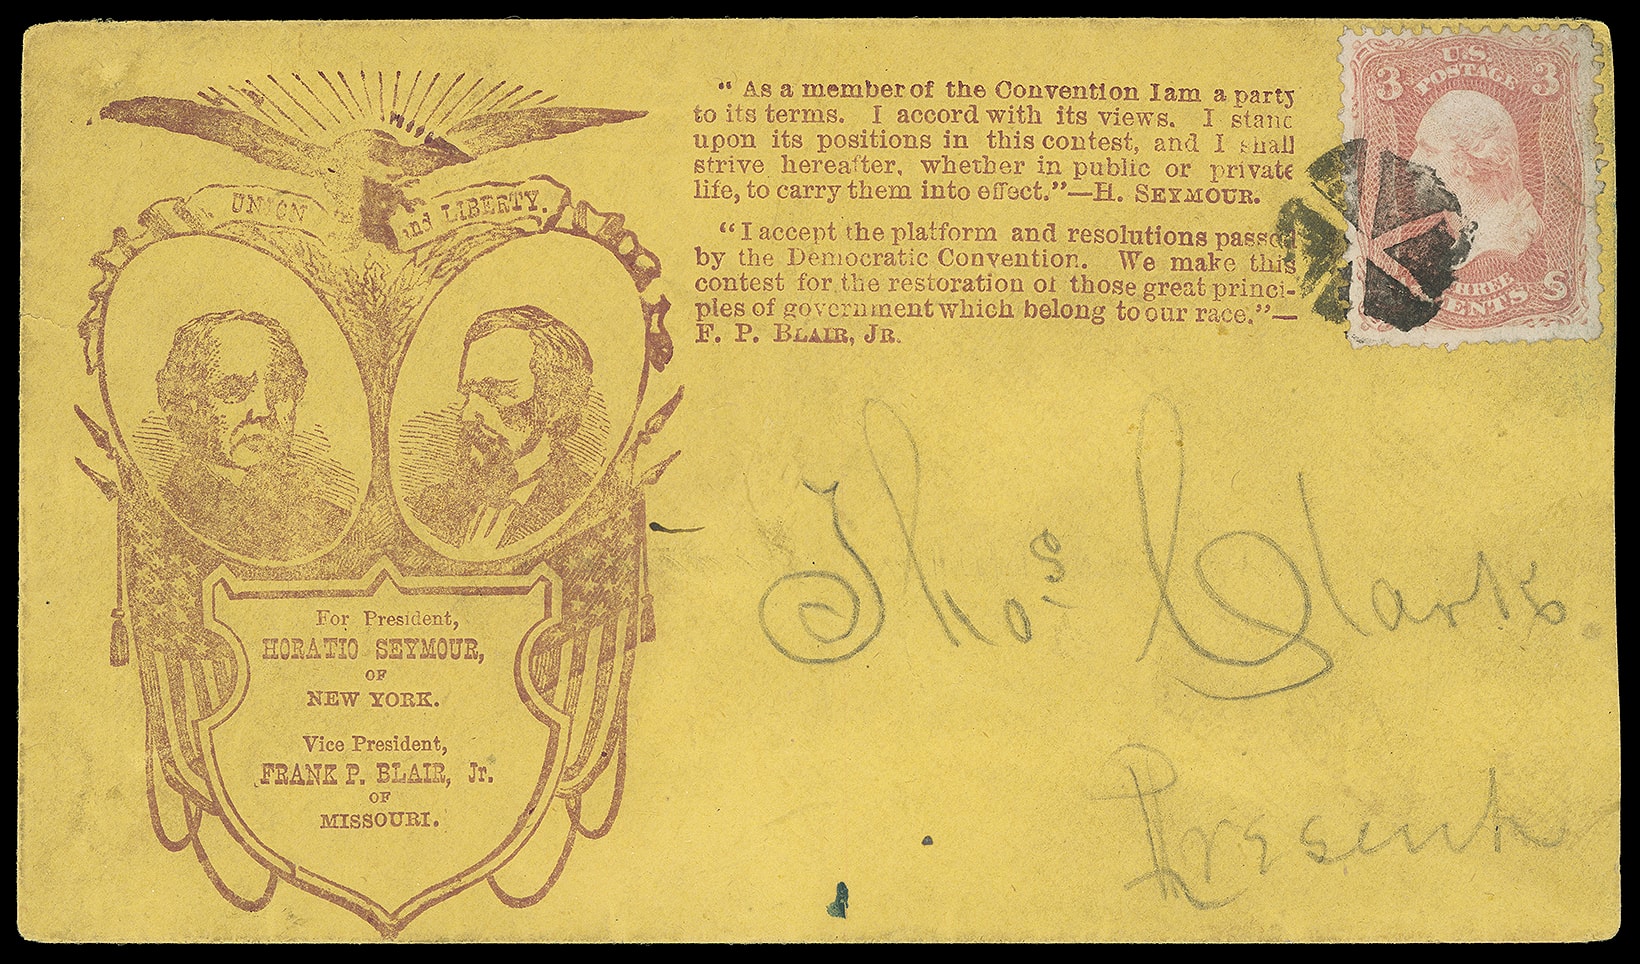 UNION and LIBERTY.
For President,
HORATIO SEYMOUR,
OF
NEW YORK.
Vice President,
FRANK P. BLAIR, Jr.
OF
MISSOURI.
“As a member of the Convention I am a party
to its terms. I accord with its views. I stand
upon its positions in this contest, and I shall
strive hereafter, whether in public or private
life, to carry them into effect.”—H. SEYMOUR.
“I accept the platform and resolutions passed
by the Democratic Convention. We make this
contest for the restoration of those great princi-
ples of government which belong to our race.”—
F. P. BLAIR, JR.
U.S.
POSTAGE
3 3
THREE
CENTS
Thos. Clark
Present